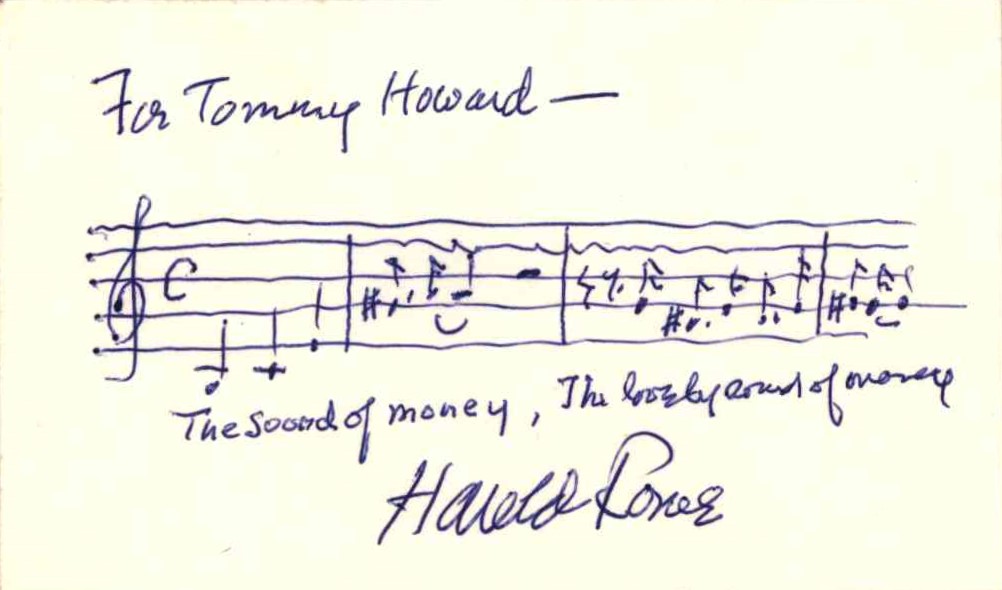 For Tommy Howard —
C
The sound of money, The lovely sound of money
Harold Rome